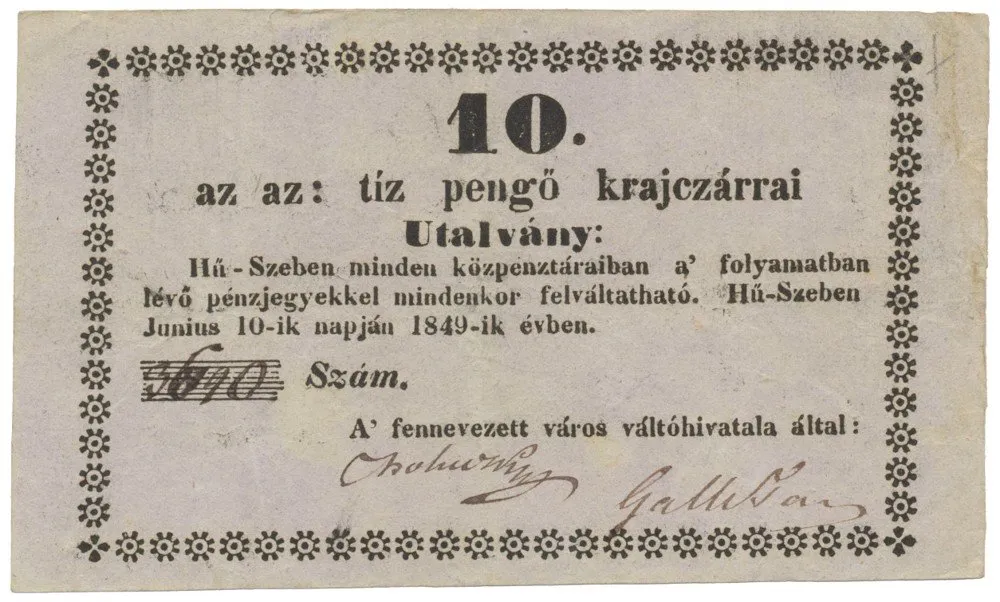 10.
az az: tíz pengő krajczárrai
Utalvány:
Hű-Szeben minden közpenztáraiban a' folyamatban
lévő pénzjegyekkel mindenkor felváltatható. Hű-Szeben
Junius 10-ik napján 1849-ik évben.
3690 Szám.
A' fennevezett város váltóhivatala által: